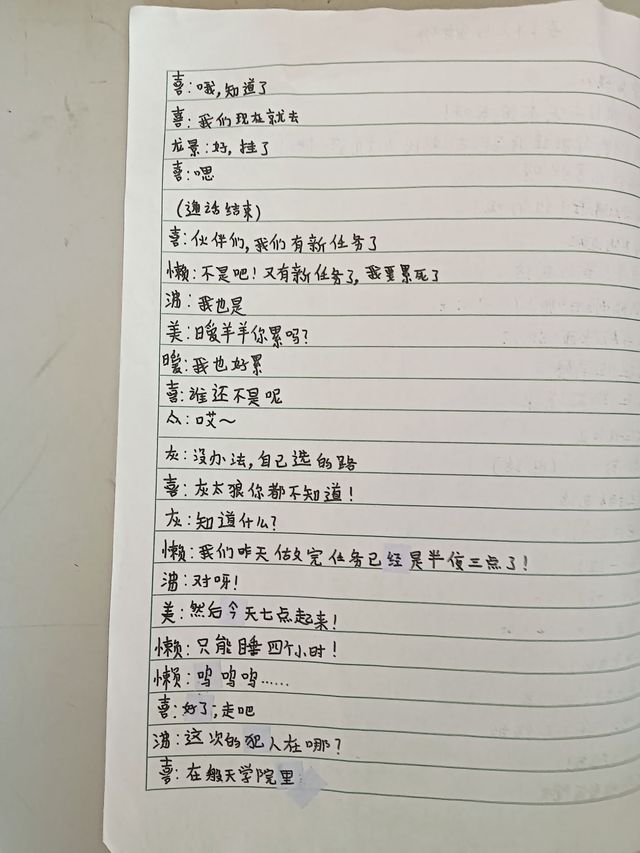 喜:哦,知道了
喜:我们现在就去
龙景:好,挂了
喜:嗯
(通话结束)
喜:伙伴们,我们有新任务了
懒:不是吧!又有新任务了,我要累死了
沸:我也是
美:暖羊羊你累吗?
暖:我也好累
喜:谁还不是呢
众:哎~
灰:没办法,自己选的路
喜:灰太狼你都不知道!
灰:知道什么?
懒:我们昨天做完任务已经是半夜三点了!
沸:对呀!
美:然后今天七点起来!
懒:只能睡四个小时!
懒:呜呜呜……
喜:好了,走吧
沸:这次的犯人在哪?
喜:在般天学院里